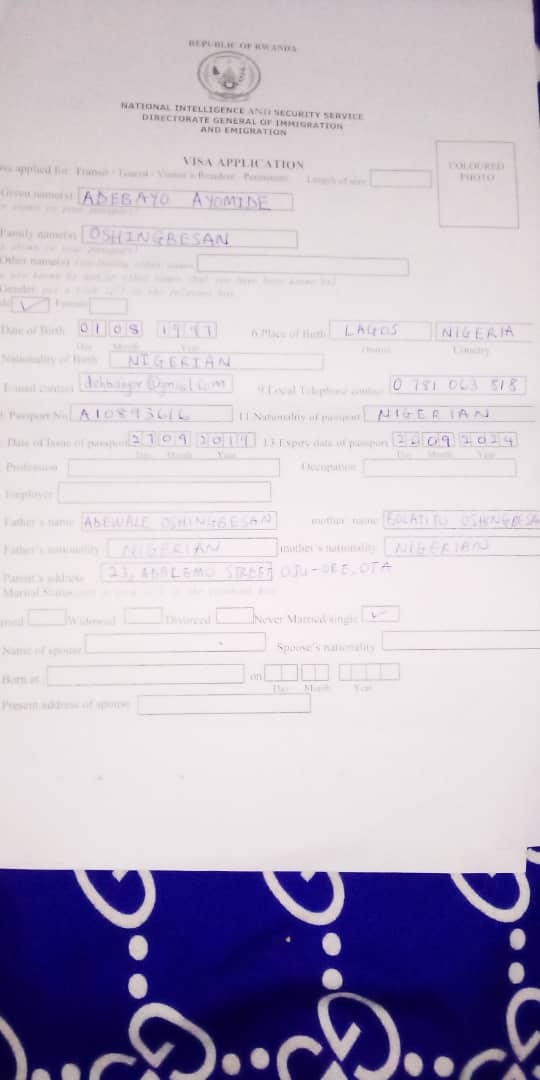 REPUBLIC OF RWANDA
NATIONAL INTELLIGENCE AND SECURITY SERVICE
DIRECTORATE GENERAL OF IMMIGRATION
AND EMIGRATION
VISA APPLICATION
COLOURED PHOTO
applied for: Transit / Tourist / Visitor's / Resident - Permanent Length of stay
Given name(s) ADEBAYO AYOMIDE
Family name(s) OSHINGBESAN
Other name(s)
Gender Female
Date of Birth 01 08 6.Place of Birth LAGOS NIGERIA
Day Month Year District Country
Nationality of Birth NIGERIAN
E-mail contact 9.Local Telephone contact 0 781 063 818
Passport No A10893616 11 Nationality of passport NIGERIAN
Date of Issue of passport 27 09 2019 13.Expiry date of passport 26 09 2024
Day Month Year Day Month Year
Profession Occupation
Employer
Father's name ADEWALE OSHINGBESAN mother name BOLATITO
Father's nationality NIGERIAN mother's nationality NIGERIAN
Parent's address 23, STREET OTA
Marital Status
Widowed Divorced Never Married/single
Name of spouse Spouse's nationality
Born at on
Day Month Year
Present address of spouse